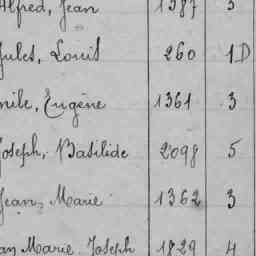 Alfred, Jean 1387 3
Jules, Louis 260 1D
Emile, Eugène 1361 3
Joseph, Basilide 2098 5
Jean, Marie 1362 3
Jean Marie Joseph 1829 4